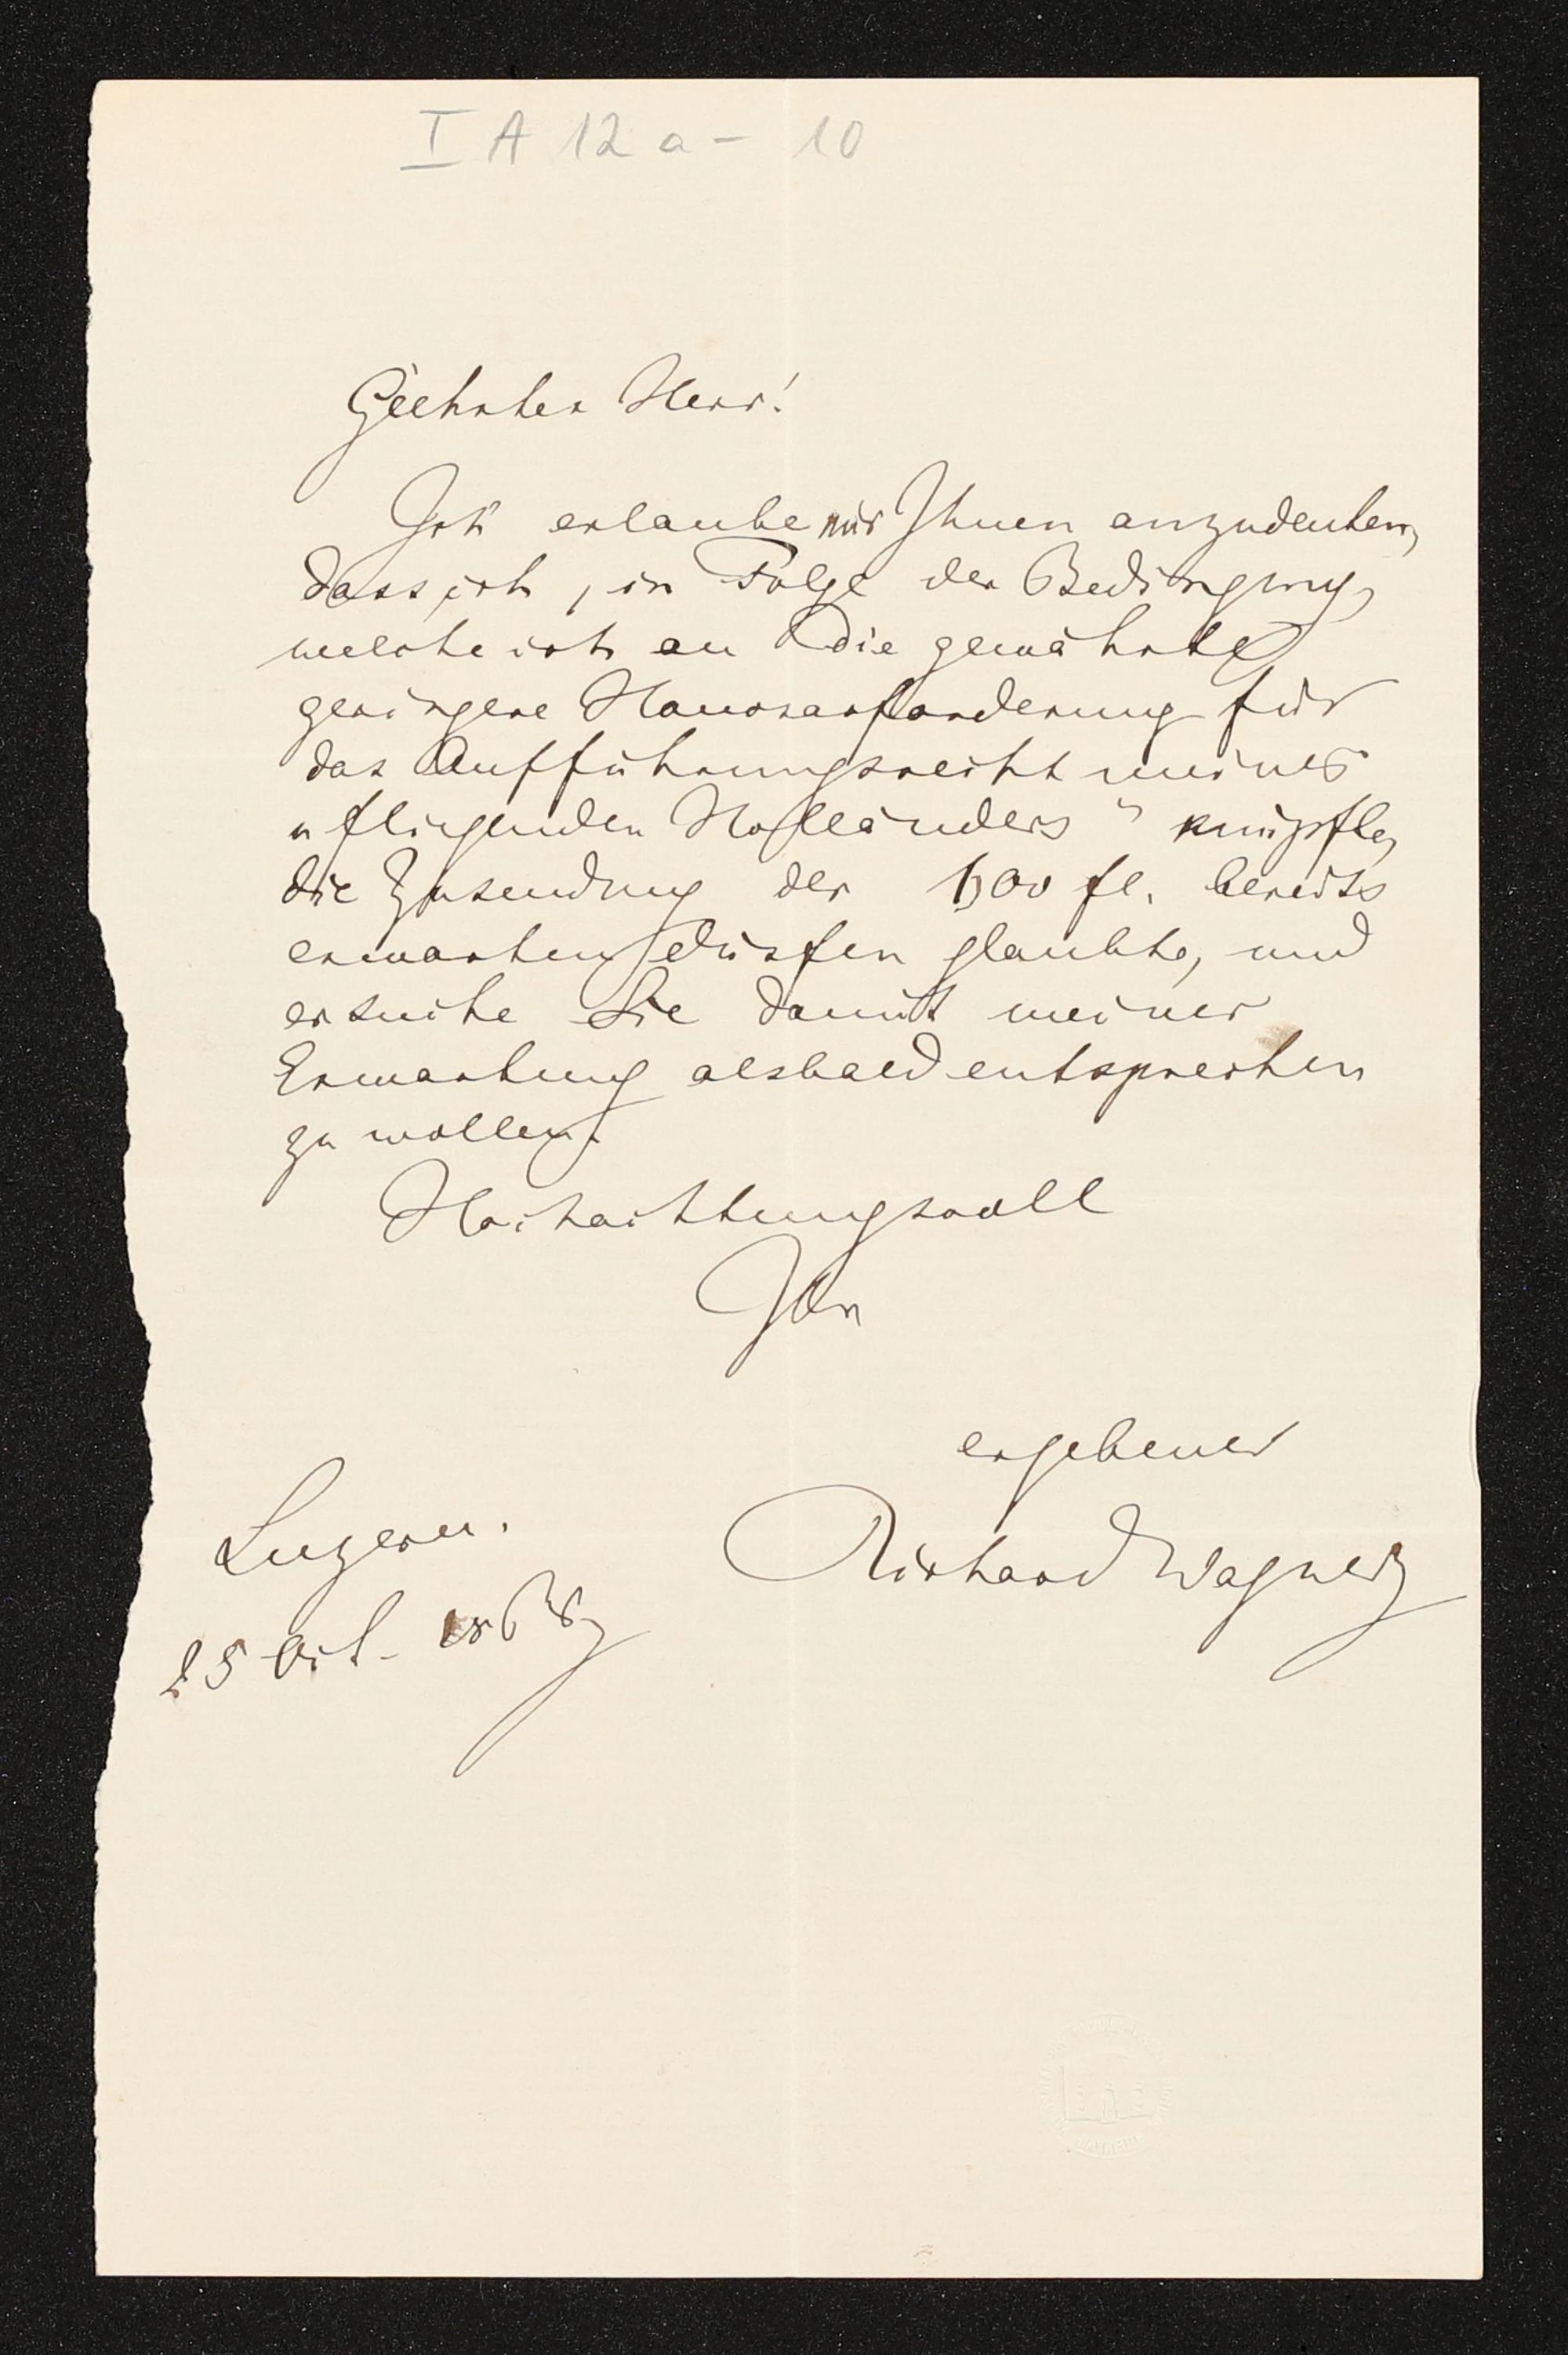 I A 12 a - 10
Geehrter Herr!
Ich erlaube mir Ihnen anzudeuten,
dass ich, in Folge der Bedingung,
welche ich an die gewährte
geringere Honorarforderung für
das Aufführungsrecht meines
„fliegenden Holländers" knüpfte,
die Zusendung der 100 fl. bereits
erwarten dürfen glaubte, und
ersuche Sie damit meiner
Erwartung alsbald entsprechen
zu wollen.
Hochachtungsvoll
Ihr
ergebener
Richard Wagner
Luzern.
25 Oct. 1868